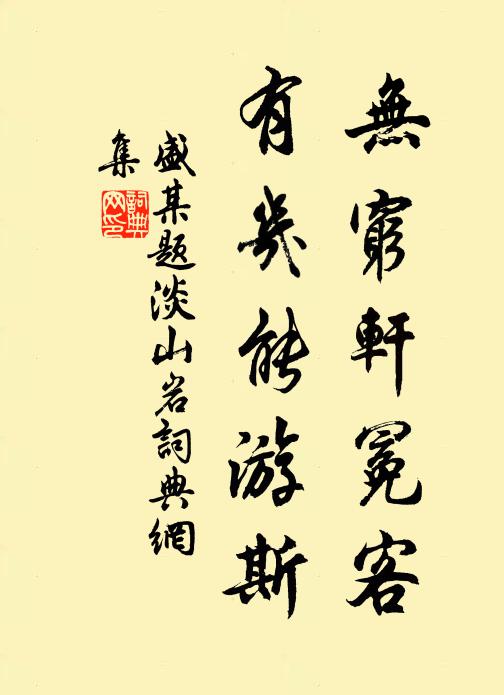 無窮軒冕客
有幾能游斯
盛某題淡山岩詞典網
集
詞典
网印